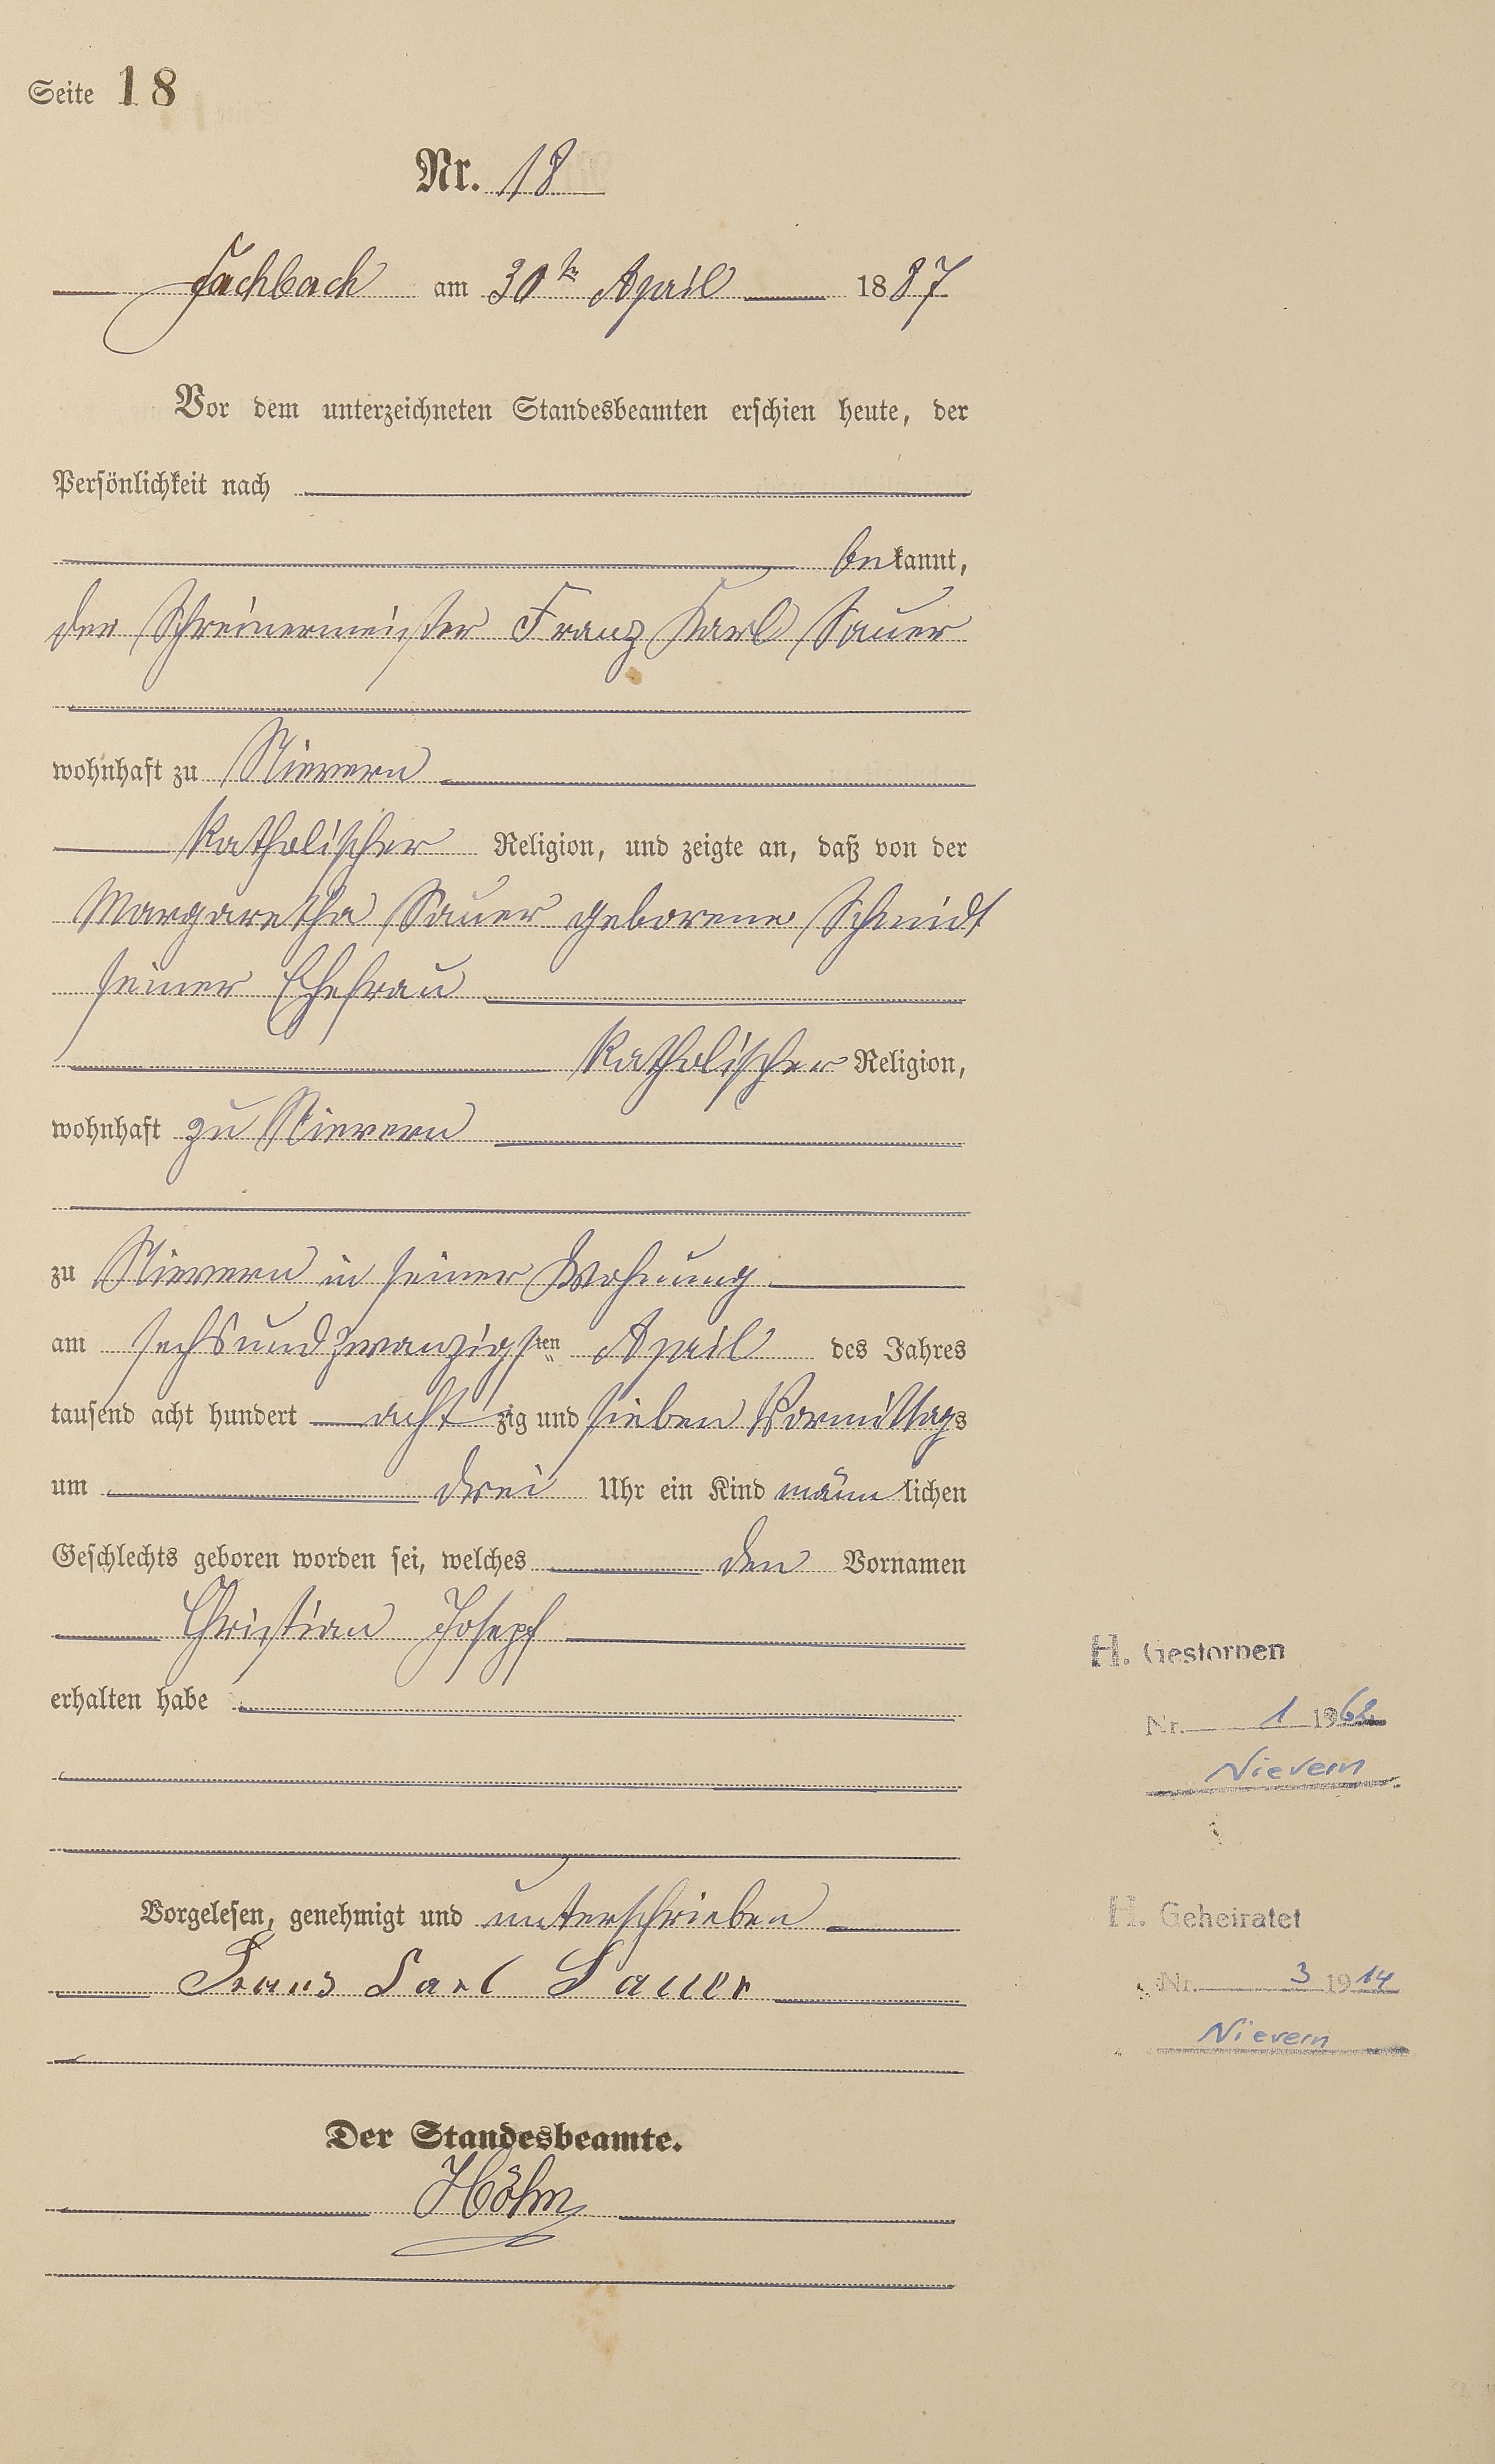 Seite 18
Nr. 18
Fachbach am 30ten April 1887
Vor dem unterzeichneten Standesbeamten erschien heute, der
Persönlichkeit nach
bekannt,
der Schreinermeister Franz Karl Sauer
wohnhaft zu Nievern
katholischer Religion, und zeigte an, daß von der
Margaretha Sauer geborene Schmidt
seiner Ehefrau
katholischer Religion,
wohnhaft zu Nievern
zu Nievern in seiner Wohnung
am sechsundzwanzigsten April des Jahres
tausend acht hundert achtzig und sieben Vormittags
um drei Uhr ein Kind männlichen
Geschlechts geboren worden sei, welches den Vornamen
Christian Joseph
erhalten habe
Vorgelesen, genehmigt und unterschrieben
Franz Carl Sauer
Der Standesbeamte.
Höhn
H. Gestorben
Nr. 1 1962
Nievern
H. Geheiratet
Nr. 3 1914
Nievern